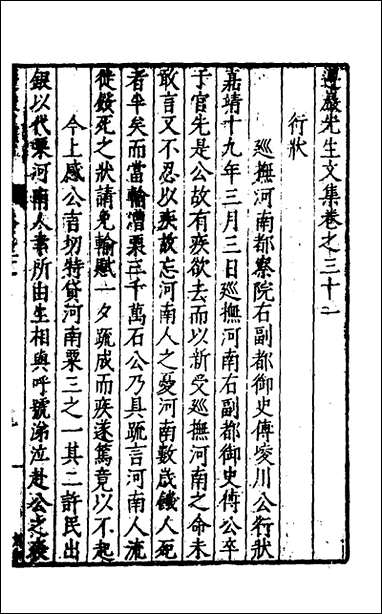 遵巖先生文集卷之三十二
行狀
巡撫河南都察院右副都御史傅凌川公行狀
嘉靖十九年三月三日巡撫河南右副都御史傅公卒
于官先是公故有疾欲去而以新受巡撫河南之命未
敢言又不忍以疾故忘河南人之憂河南數歲饑人死
者半矣而當輸漕粟三千萬石公乃具疏言河南人流
徙殍死之狀請免輸賦一夕疏成而疾遂篤竟以不起
今上感公言切特貸河南粟三之一其二許民出
銀以代粟河南人業所由生相與呼號涕泣赴公之喪